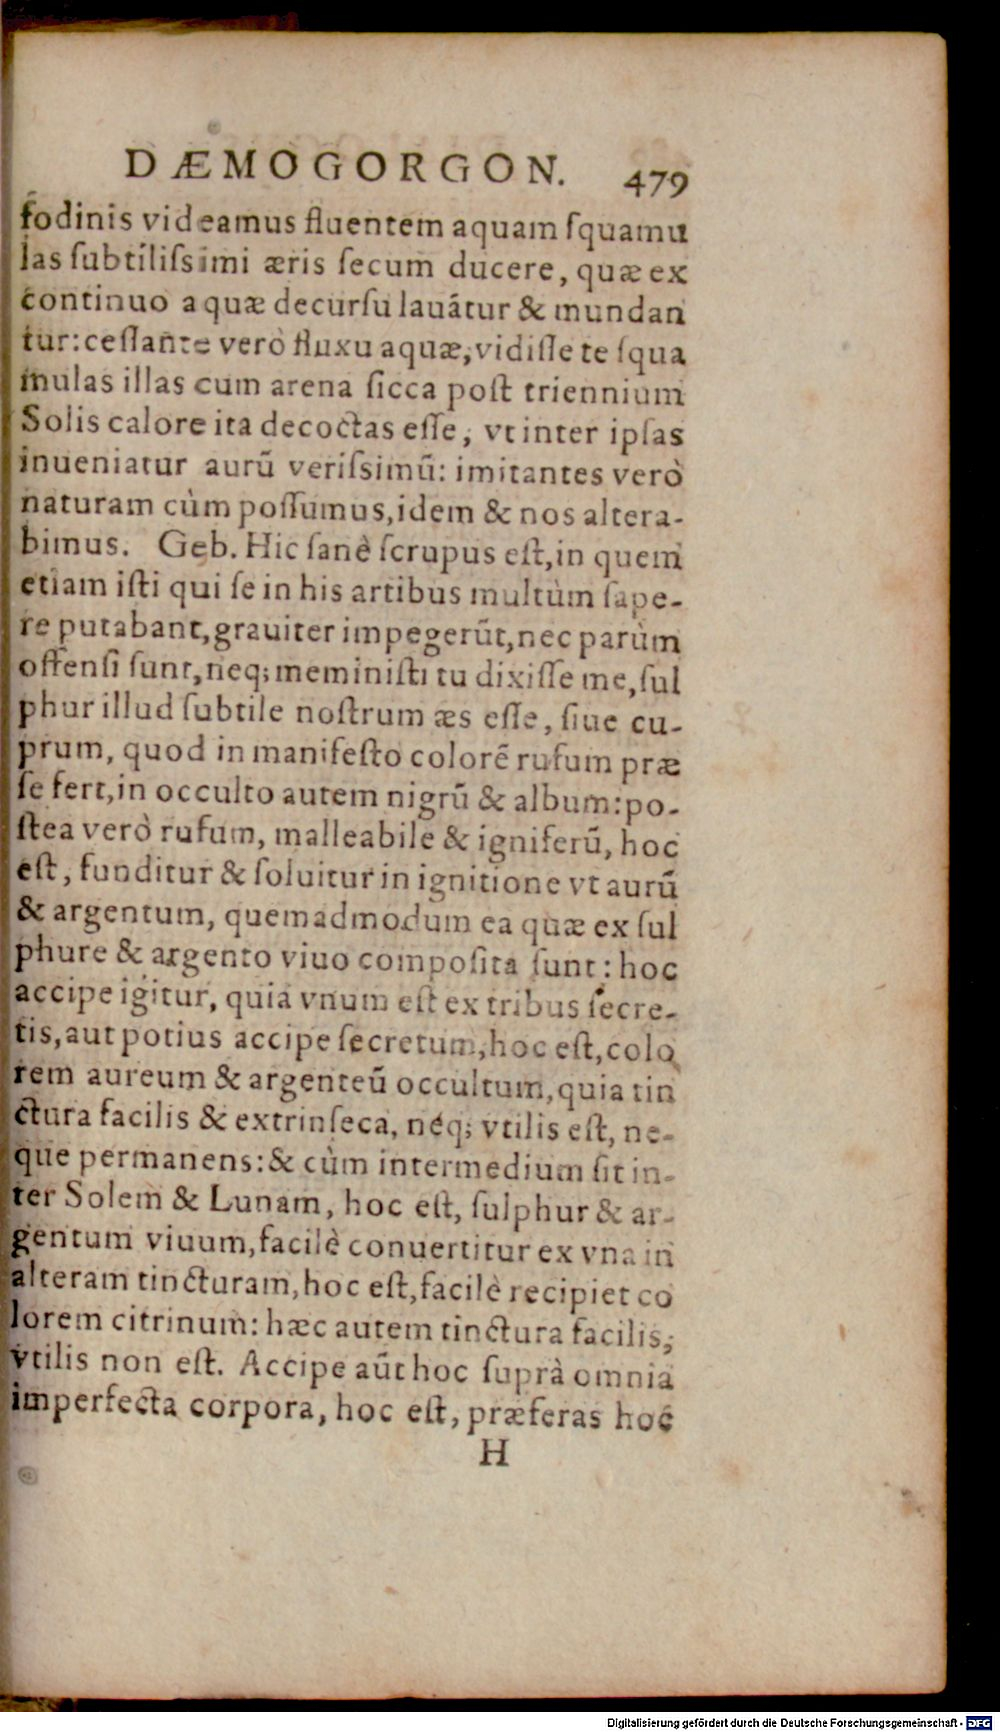 DÆMOGORGON. 479
fodinis videamus fluentem aquam ſquamu
las ſubtiliſsimi æris ſecum ducere, quæ ex
continuo aquæ decurſu lauãtur & mundan
tur: ceſſante verò fluxu aquæ, vidiſſe te ſqua
mulas illas cum arena ſicca poſt triennium
Solis calore ita decoctas eſſe, vt inter ipſas
inueniatur aurũ veriſsimũ: imitantes verò
naturam cùm poſſumus, idem & nos altera-
bimus. Geb. Hic ſanè ſcrupus eſt, in quem
etiam iſti qui ſe in his artibus multùm ſape-
re putabant, grauiter impegerũt, nec parùm
offenſi ſunt, neq; meminiſti tu dixiſſe me, ſul
phur illud ſubtile noſtrum æs eſſe, ſiue cu-
prum, quod in manifeſto colorẽ rufum præ
ſe fert, in occulto autem nigrũ & album: po-
ſtea verò rufum, malleabile & igniferũ, hoc
eſt, funditur & ſoluitur in ignitione vt aurũ
& argentum, quemadmodum ea quæ ex ſul
phure & argento viuo compoſita ſunt: hoc
accipe igitur, quia vnum eſt ex tribus ſecre-
tis, aut potius accipe ſecretum, hoc eſt, colo
rem aureum & argenteũ occultum, quia tin
ctura facilis & extrinſeca, neq; vtilis eſt, ne-
que permanens: & cùm intermedium ſit in-
ter Solem & Lunam, hoc eſt, ſulphur & ar-
gentum viuum, facilè conuertitur ex vna in
alteram tincturam, hoc eſt, facilè recipiet co
lorem citrinum: hæc autem tinctura facilis,
vtilis non eſt. Accipe aũt hoc ſuprà omnia
imperfecta corpora, hoc eſt, præferas hoc
H
Digitalisierung gefördert durch die Deutsche Forschungsgemeinschaft - DFG